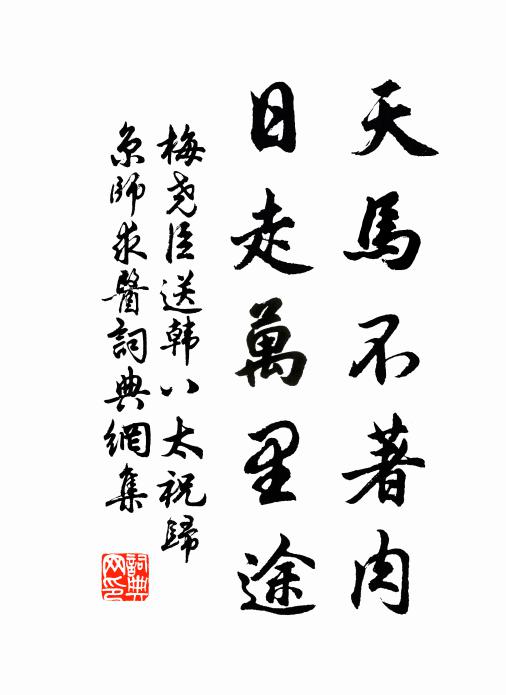 天馬不著肉
日走萬里途
梅堯臣送韩八太祝歸
京師求醫詞典網集
詞典
网印